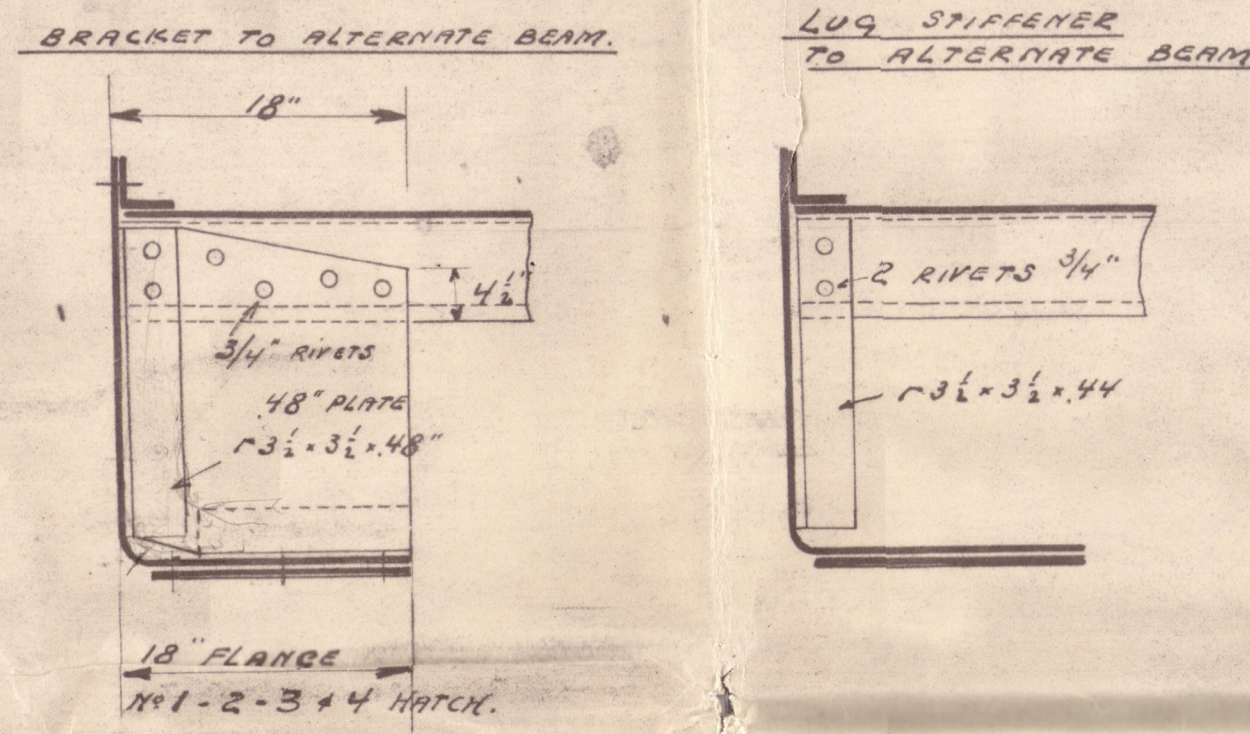 BRACKET TO ALTERNATE BEAM.
18"
4 1/2"
3/4" RIVETS
.48" PLATE
r 3 1/2 x 3 1/2 x .48"
18" FLANGE
No 1 - 2 - 3 & 4 HATCH.
LUG STIFFENER
TO ALTERNATE BEAM
2 RIVETS 3/4"
r 3 1/2 x 3 1/2 x .44